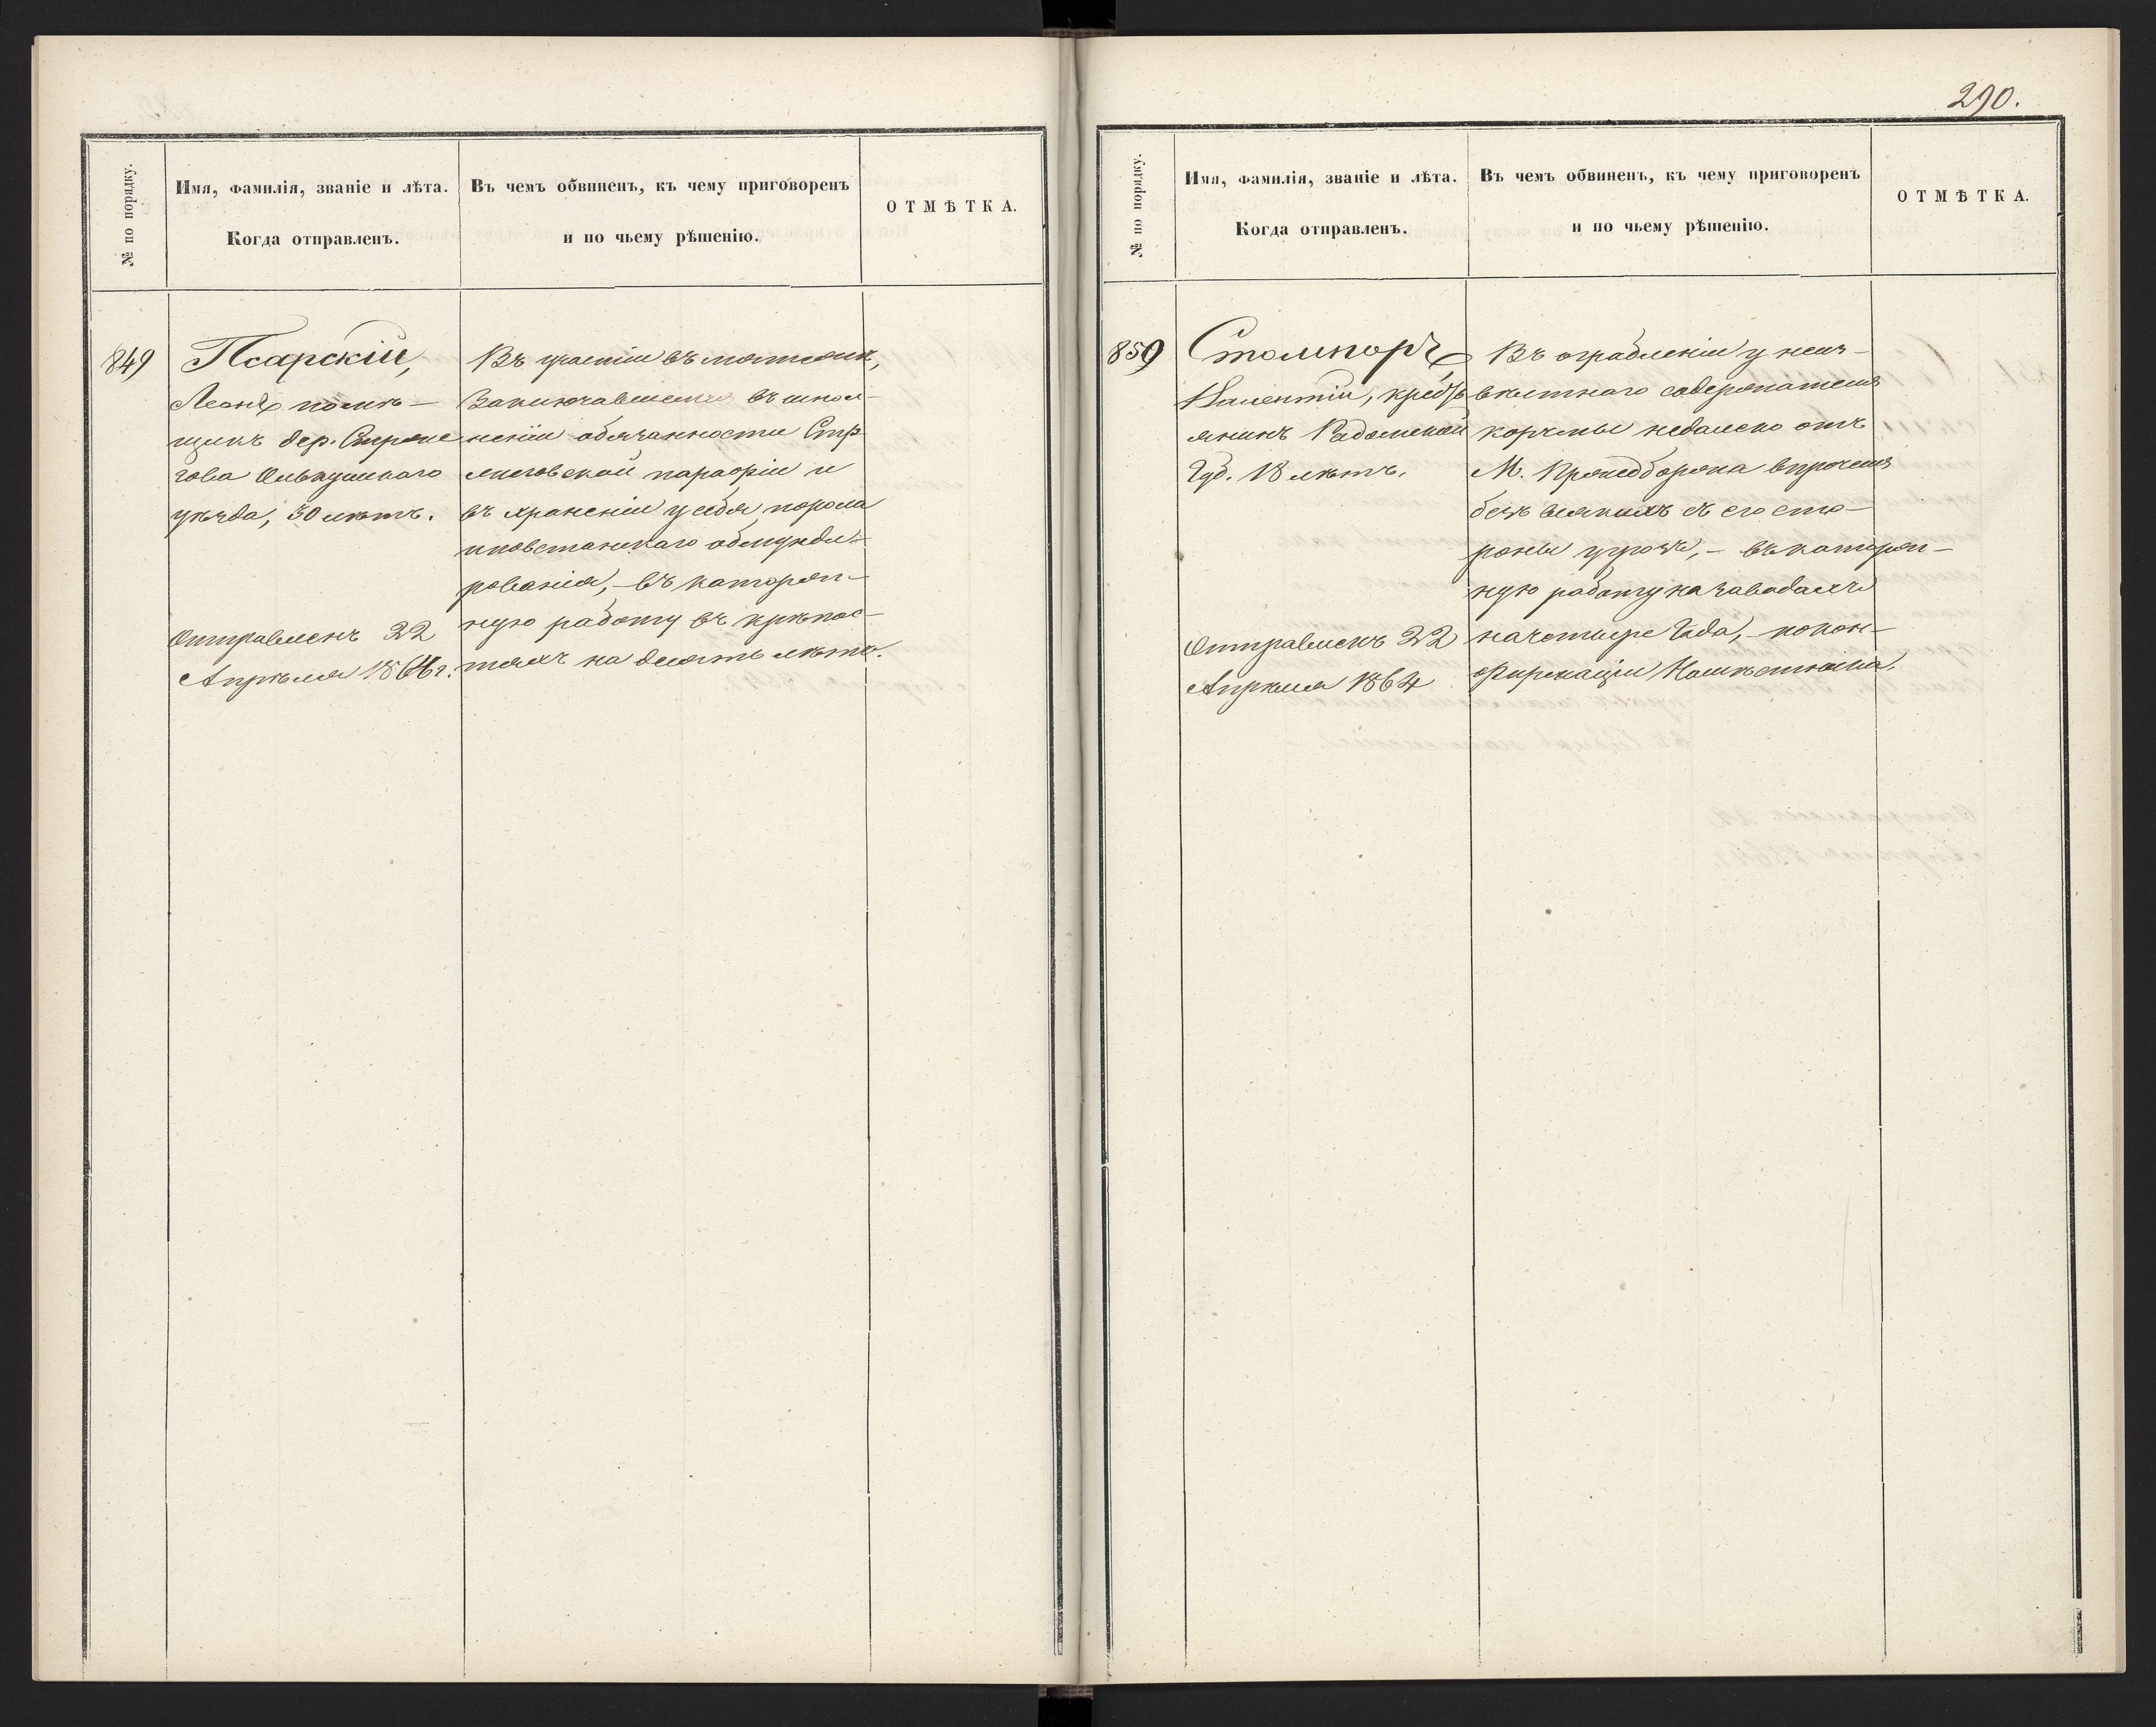 № по порядку.
Имя, фамилія, званіе и лѣта.
Когда отправленъ.
Въ чемъ обвиненъ, къ чему приговоренъ
и по чьему рѣшенію.
ОТМѢТКА.
849
Псарскій,
Леонъ помѣ-
щикъ дер.
гова Олькушскаго
уѣзда, 30 лѣтъ.
Отправленъ 22
Апрѣля 1864 г.
Въ участіи въ мятежѣ,
заключавшемся въ испол-
неніи обязанности
парафіи и
въ храненіи у себя пороха
повстанскаго обмунди-
рованія, - въ каторж-
ную работу въ крѣпос-
тяхъ на десять лѣтъ.
290.
№ по порядку.
Имя, фамилія, званіе и лѣта.
Когда отправленъ.
Въ чемъ обвиненъ, къ чему приговоренъ
и по чьему рѣшенію.
ОТМѢТКА.
850
Стомпоръ
Валентій, крест
янинъ Радомской
Губ. 18 лѣтъ.
Отправленъ 22
Апрѣля 1864
Въ ограбленіи у неиз-
вѣстнаго содержателя
корчмы недалеко отъ
М. впрочемъ
безъ всякихъ съ его сто-
роны угрозъ, - въ каторж-
ную работу на заводахъ
на четыре года, - по кон-
фирмаціи Намѣстника.